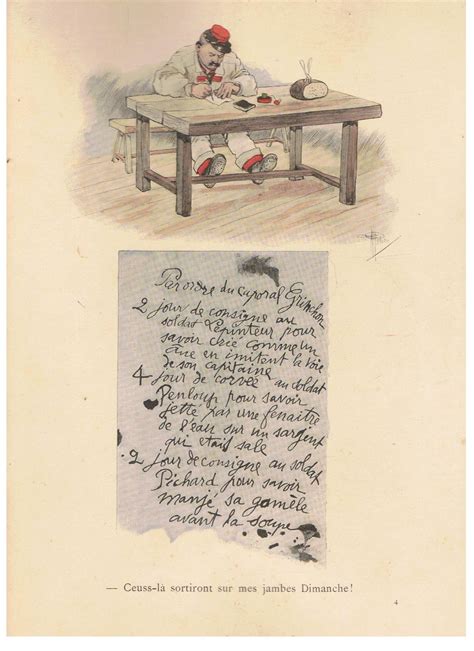 Par ordre du caporal Grinchon
2 jour de consigne au
soldat Lepinteur pour
savoir crié comme un
âne en imitent la voie
de son capitaine
4 jour de corvée au soldat
Penloup pour savoir
jetté par une fenaitre
de l'eau sur un sargent
qui etait sale
2 jour de consigne au soldat
Pichard pour savoir
manjé sa gamèle
avant la soupe
— Ceuss-là sortiront sur mes jambes Dimanche!
4